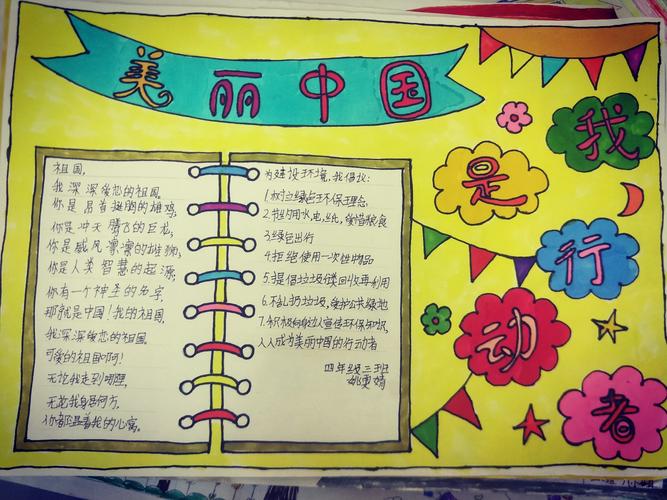 美丽中国
我是行动者
祖国,
我深深爱恋的祖国。
你是昂首挺胸的雄鸡,
你是冲天腾飞的巨龙,
你是威风凛凛的雄狮,
你是人类智慧的起源,
你有一个神圣的名字,
那就是中国!我的祖国,
我深深爱恋的祖国。
可爱的祖国啊!
无论我走到哪里,
无论我身居何方,
你都温暖着我的心窝。
为建设环境,我倡议:
1.树立绿色环保理念
2.节约用水,电,纸,爱惜粮食
3.绿色出行
4.拒绝使用一次性物品
5.提倡垃圾分类回收再利用
6.不乱扔垃圾,爱护公共绿地
7.积极向身边人宣传环保知识,
人人成为美丽中国的行动者
四年级三班